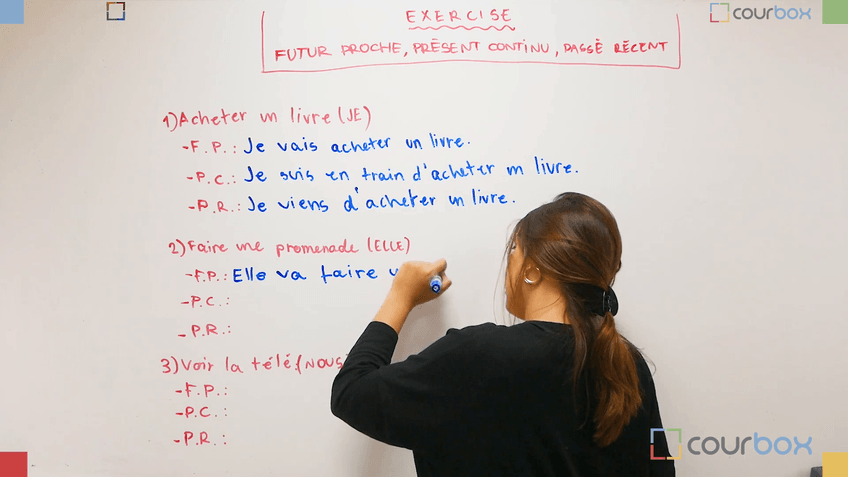 courbox
EXERCISE
FUTUR PROCHE, PRÉSENT CONTINU, PASSÉ RÉCENT
1) Acheter un livre (JE)
- F.P.: Je vais acheter un livre.
- P.C.: Je suis en train d'acheter un livre.
- P.R.: Je viens d'acheter un livre.
2) Faire une promenade (ELLE)
- F.P.: Elle va faire
- P.C.:
- P.R.:
3) Voir la télé. (NOUS
- F.P.:
- P.C.:
- P.R.:
courbox